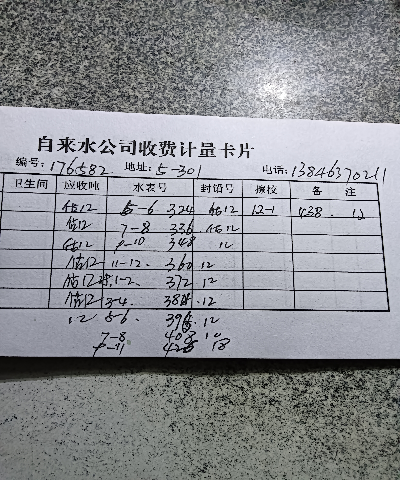 自来水公司收费计量卡片
编号: 176582 地址: 5-301 电话: 13846370211
卫生间 应收吨 水表号 封铅号 撩校 备 注
估12 5-6 324 估12 12-1 438 12
估12 7-8 336 估12
估12 9-10 348 12
估12 11-12 360 12
估12 1-2 372 12
估12 3-4 384 12
12 5-6 396 12
7-8 408
9-11 426 18